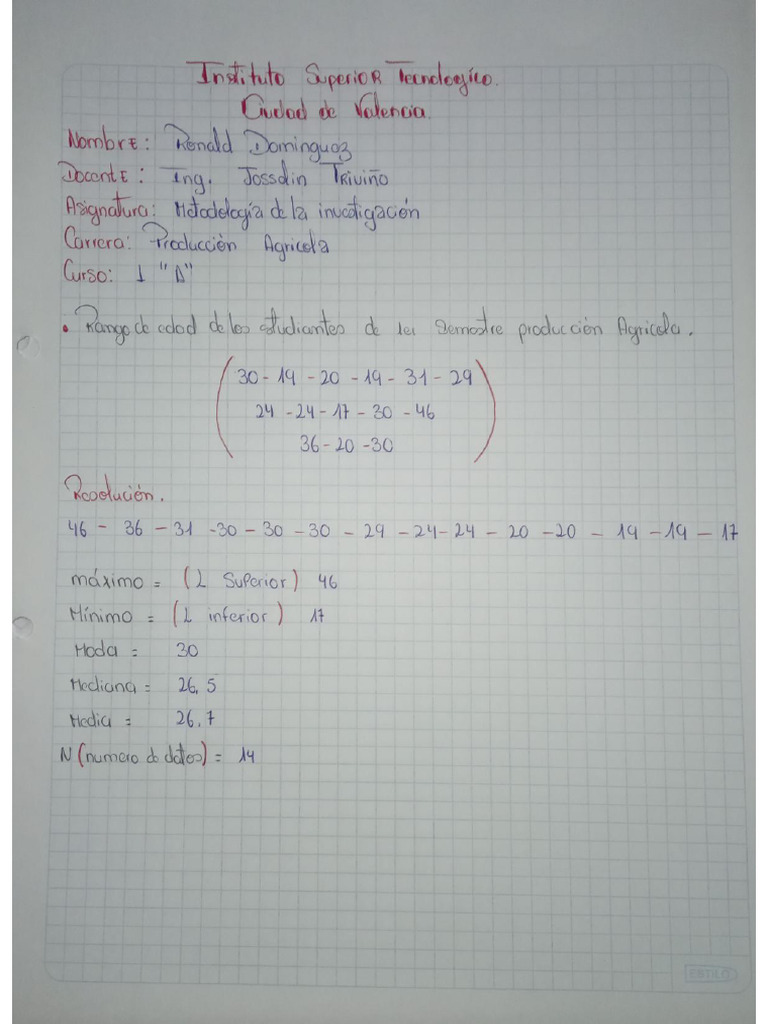 Instituto Superior Tecnologico.
Ciudad de Valencia.
Nombre: Ronald Dominguez
Docente: Ing. Josselin Triviño
Asignatura: Metodología de la investigación
Carrera: Producción Agricola
Curso: 1 "A"
• Rango de edad de los estudiantes de 1er Semestre producción Agricola.
30 - 19 - 20 - 19 - 31 - 29
24 - 24 - 17 - 30 - 46
36 - 20 - 30
Resolución.
46 - 36 - 31 - 30 - 30 - 30 - 29 - 24 - 24 - 20 - 20 - 19 - 19 - 17
máximo = (L Superior) 46
Mínimo = (L inferior) 17
Moda = 30
Mediana = 26,5
Media = 26,7
N (numero de datos) = 14
ESTILO